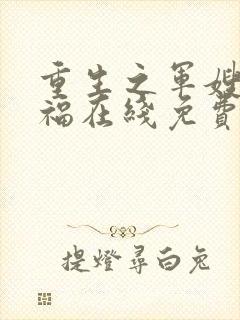 重生之军嫂
福在线免费
提灯寻白兔